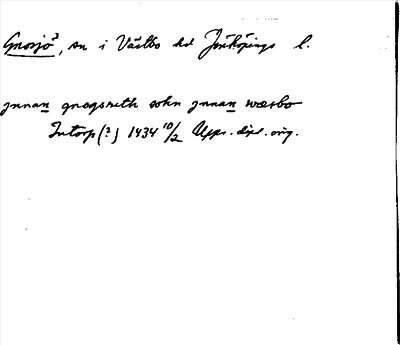 Gnosjö, sn i Västbo hd Jönköpings l.
jnnan gnogsreth sokn jnnan wæsbo
Intorp (?) 1434 10/2 Upps. dipl. orig.